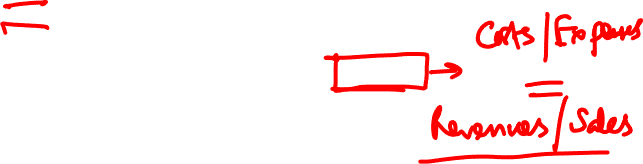 Costs/Expenses
=
Revenues/Sales